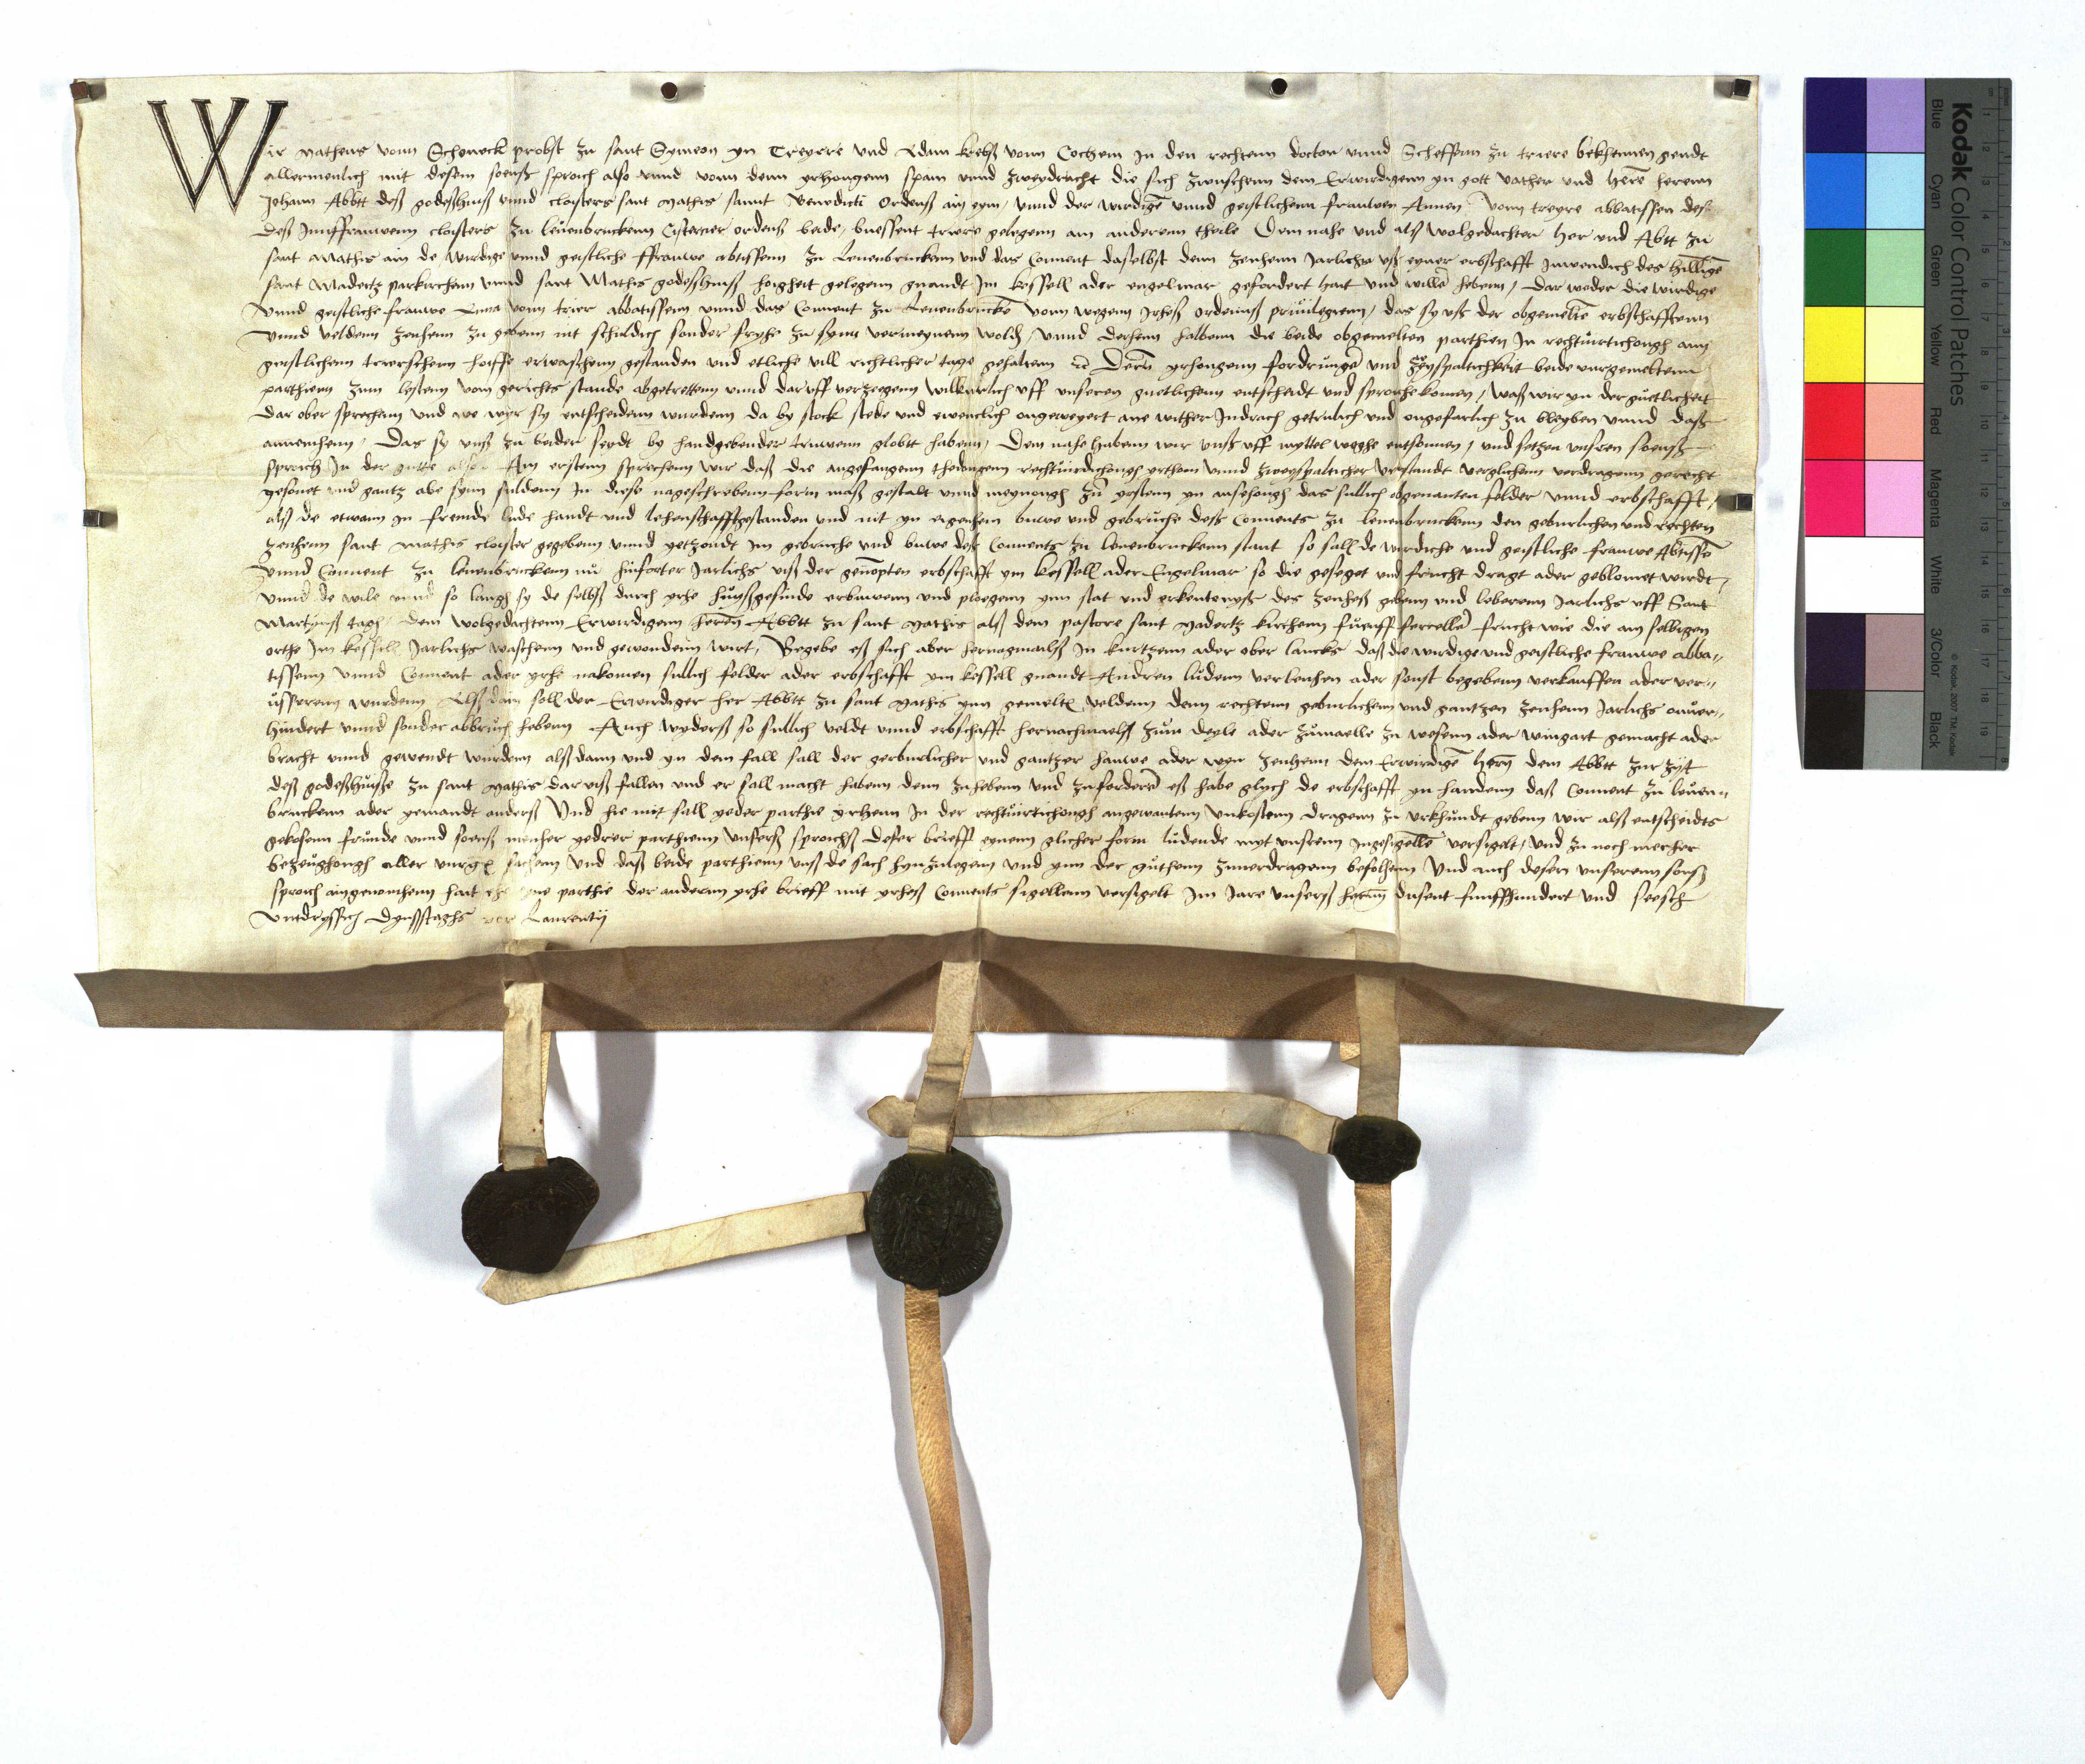 Wir Matheus vonn Schoneck probst zu sant Symeon yn Treyere vnd Adam krebß vonn Cochem In den rechtenn doctor vnnd Scheffenn zu triere bekhennen gendt
allermenlich mit desem soenß sproich also vnnd vonn denn yrhongenn span vnnd zweydracht die sich zwuschenn dem Erwirdigenn yn gott vather vnd here herenn
Johann Abbtt deß godeßhuß vnnd cloisters sant Mathis sannt Benedicti Ordenß ain eyn, vnnd der wirdige vnnd geistlichenn frauwen Annen vonn treyre abbatissen des
deß Junffrauwenn cloisters zu leuenbruckenn Cistercier ordenß beide, buessent triere gelegenn am anderenn theile Dem nahe vnd alß wolgedachter her vnd Abtt zu
sant Mathis ain de wirdige vnnd geistliche ffrauwe abtissenn zu Leuenbruckenn vnd das Conuent daselbst denn zenhenn Jarlichs vß eyner erbschafft Inwendich des hillige
sant Madertz parkirchenn vnnd sant Mathis godeßhuß hoigheit gelegenn gnandt Im kessell ader engelmar gefordert hait vnd wille hebenn, dar weder die wirdige
vnnd geistliche frauwe Anna vonn trier abbatissenn vnnd das Conuent zu Leuenbrucke vonn wegenn Irheß ordenß priuilegienn, das sy vß der obgemelte erbschafftenn
vnnd veldenn zenhenn zu gebenn nit schuldich sonder fryhe zu synn vermeynenn wolch, vnnd dersenn halbenn die beide obgemelten parthien In rechtuirtichongh am
geistlichenn trierschenn hoiffe erwaschenn gestanden vnd etliche vill richtlicher tage gehaltenn Dern yrhongenn fordrunge vnd zweyspaltichkeit beide vurgemeltenn
parthienn zum lestenn vom gerichts stande abgetrettenn vnnd daruff verzeegenn willkurlich vff vnseren guetlichenn entscheidt vnd sproche komen, waß wir yn der guetlicheit
dar ober sprechenn vnd we wyr sy entscheidenn wurdenn da by stock stede vnd ewenclich ongeweyert ane wither Indrach getrulich vnd ongefarlich zu bleyben vnnd daß
annemhenn, Das sy vnß zu beider sydt by handgebender truwenn globtt habenn, Dem nahe habenn wir vnß vff myttel weghe entsonnen, vnd setzen vnseren soenß
sproich In der gutte also. Am erstenn sprechenn wir daß die angefangenn thedongenn rechtuirdichongh yrthom vnnd zweyspalticher verstandt verglichenn verdragenn gericht
gesonet vnd gantz abe synn sullenn In diese nageschrebenn form maß gestalt vnnd meynongh zu yrstenn yn ansehongh das sullich obgenanten felder vnnd erbschafft,
alß de etwann In fremde lude handt vnd lehenschafftgestanden vnd nit yn eigenhem buwe vnd gebruche deß Conuents zu leuenbruckenn den geburlichen vnd rechten
zenhenn sant Mathis cloister gegebenn vnnd yetzondt im gebruche vnd buwe deß Conuents zu leuenbruckenn stant so sall de wirdiche vnd geistliche frauwe Abtisse
vnnd Conuent zu leuenbruckenn nu hinforter Jarlichs vß der genopten erbschafft ym kessell ader Engelmar so die geseget vnd frucht dragt ader geblomet wirdt,
vnnd de wile vnnd so langh sy de selbß durch yrhe huyßgesinde erbuwenn vnd ploegenn ynn stat vnd erkentenyß des zenheß gebenn vnd leberenn Jarlichs vff Sant
Martynß tagh dem wolgedachtenn Erwirdigenn heren Abbtt zu sant Mathis alß dem pastore sant Madertz kirchenn fueuff fercelle frucht wie die am selbigen
orthe Im kessell Jarlichs waschenn vnd gewondenn wirt, Begebe eß sich aber hernagmailß In kurtzenn ader ober lancks daß die wirdige vnd geistliche frauwe abba"
tissenn vnnd Conuent ader yrhe nakomen sullich felder ader erbschafft ym kessell gnandt Andren ludenn verlenhen ader sonst begebenn verkauffen ader ver"
ussernn wurdenn Alß dan soll der Erwirdiger her Abbtt zu sant Mathis ynn gemelte veldenn denn rechtenn geburlichenn vnd gantzen zenhenn Jarlichs onuer"
hindert vnnd sonder abbruch hebenn Auch wyderß so sullich veldt vnnd erbschafft hernachmaelß zum deyle ader zumaelle zu wesenn ader wingart gemacht ader
bracht vnnd gewendt wurdenn alß dann vnd yn dem fall sall der geburlicher vnd gantzer hauwe ader wyn zenhenn dem Erwirdige hern dem Abbtt zur zyt
deß godeßhuiße zu sant Mathis dar vß fallen vnd er sall macht habenn denn zuhebenn vnd zufordere eß habe glych de erbschafft yn handenn daß Conuent zu leuen"
bruckenn ader yemandt anderß Vnd hie mit sall yeder parthie yrhenn In der rechtuirtichongh angewantenn vnkostenn dragenn zu vrkhundt gebenn wir alß entscheidts
gekosenn frunde vnnd soenß mecher yedrer parthienn vnserß sproichß deser brieff eynenn glicher form ludende myt vnsrenn Ingesigelle versigelt, vnd zu noch mecher
bezeughongh aller vurgeschr sachenn vnd daß beide parthienn vnß de sach hynzulegenn vnd ynn der guthenn zuuerdragenn befolhenn Vnd auch desen vnserenn sonß
sproich aingenomhenn hait yhe eyne parthie der anderenn yrhe brieff mit yrheß Conuents sigellenn versigelt Im Jare vnserß hernn dusent funffhundert vnd seesch
vntdryssich dynsstaghs vor Laurentij
Kodak Color Control Patches
© Kodak, 2007 TM: Kodak
Blue Cyan Green Yellow Red Magenta White 3/Color Black